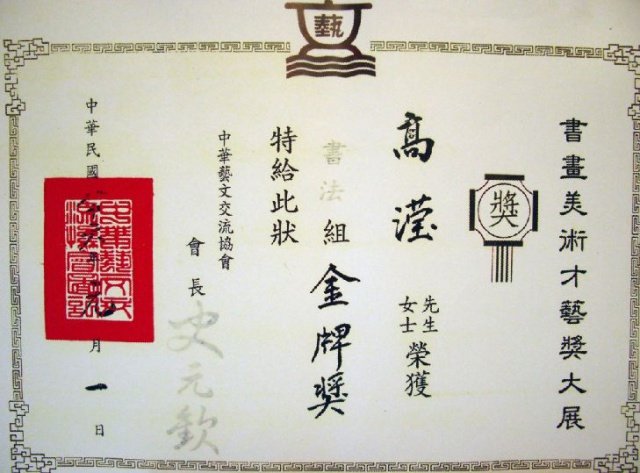 藝
書畫美術才藝獎大展
獎
高瀅 先生 女士 榮獲
書法組 金牌獎
特給此狀
中華藝文交流協會
會長 史元欽
中華民國 年 月一日